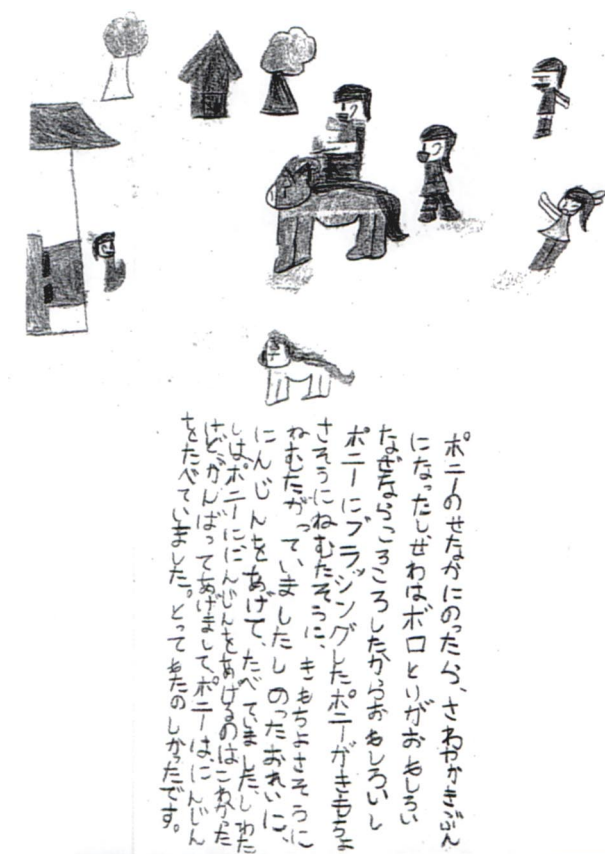 ポニーのせなかにのったら、さわやかきぶん
になったしせわはボロとりがおもしろい
なぜならころころしたからおもしろいし
ポニーにブラッシングしたポニーがきもちよ
さそうにねむたそうに、きもちよさそうに
ねむたがっていましたしのったおれいに、
にんじんをあげて、たべていました。しわた
しはポニーににんじんをあげるのはこわかった
けどがんばってあげまして、ポニーは、にんじん
をたべていました。とってもたのしかったです。